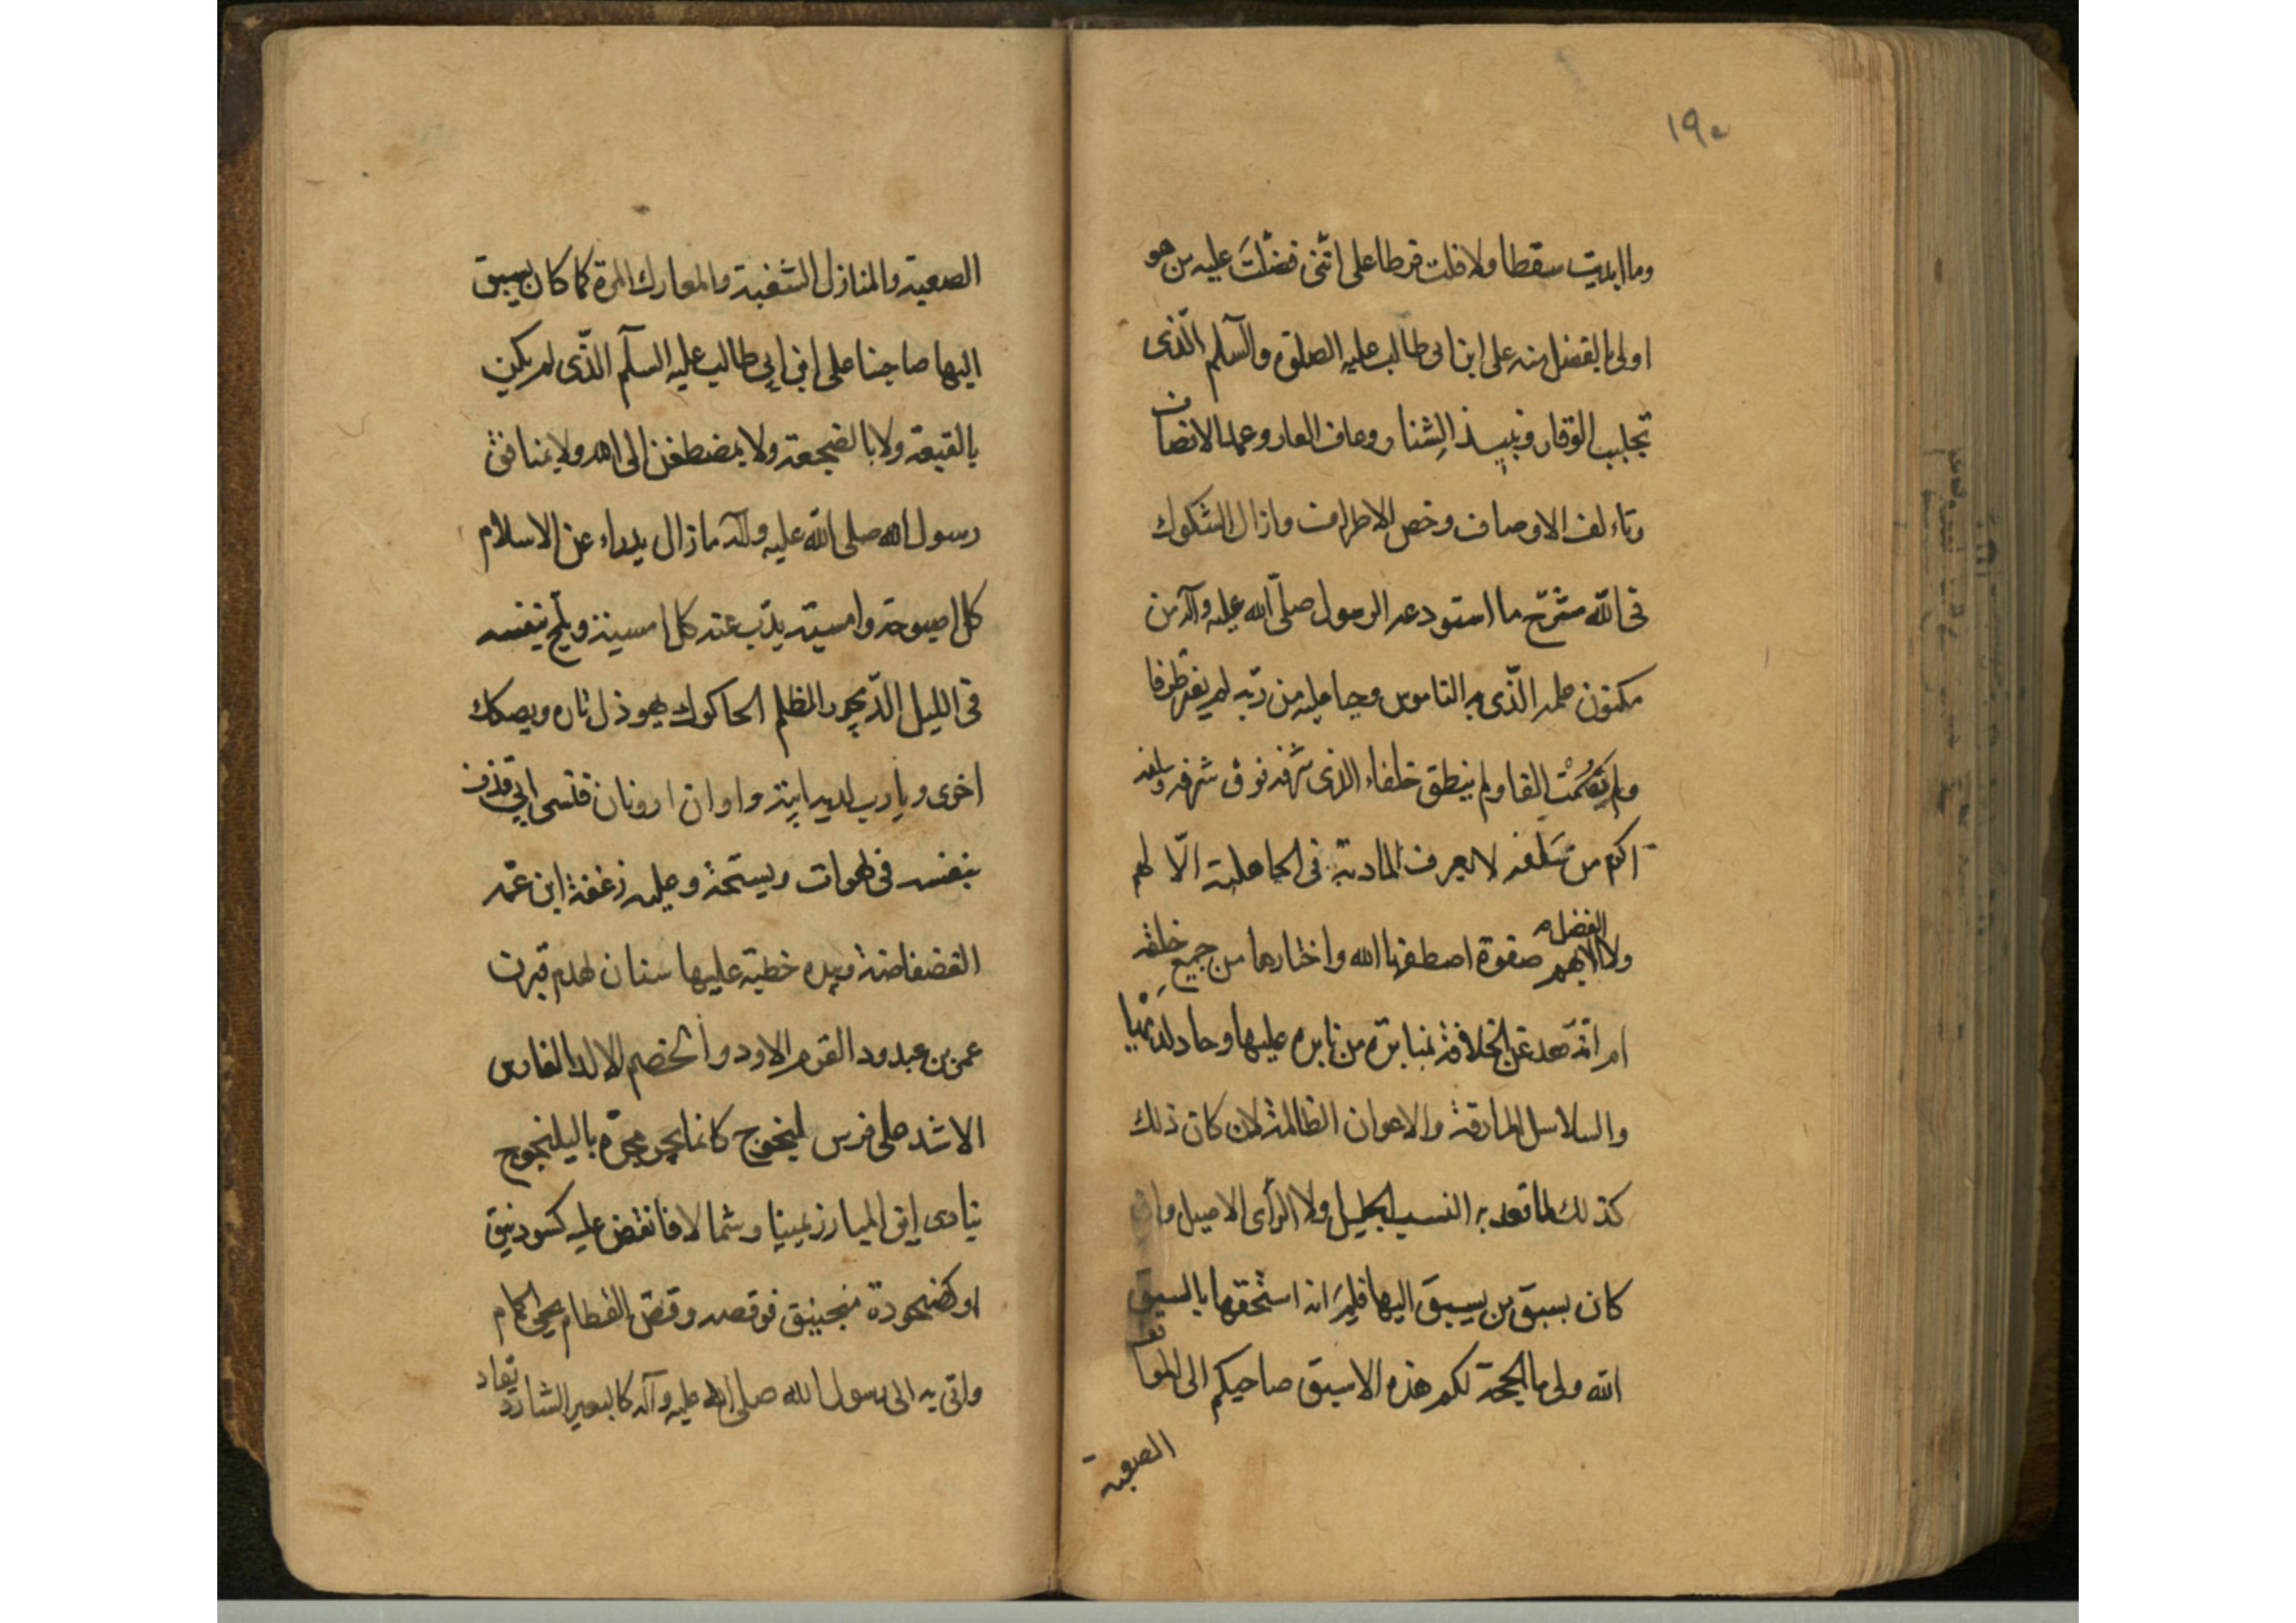 ١٩٥
وما ابديت سقطا ولا قلت فرطا على انّنى فضّلت عليه من هو
اولى بالفضل منه على ابن ابى طالب عليه الصلوة والسلم الّذى
تجلبب الوقار ونبيذ الشنار وعاف العار وعمد الانصاف
وتاءلف الاوصاف وخص الاطراف وازال الشكوك
فى الله مشرح ما استودعه الرسول صلّى الله عليه وآله من
مكنون علمه الّذى به الناموس وحيا من ربّه لم يفتر طرفا
ولم يصمت الفا ولم ينطق خلفاء الذى شرفه فوق شرفه وسلفه
اكرم من سلفه لا يعرف المادية فى الجاهلية الّا لهم
ولا الفضل الا بهم صفوة اصطفها الله واختارها من جميع خلقه
ام انّه قعد عن الخلافة بمنابزة من نابزه عليها وجادله
والسلاسل المارقة والاعوان الظالمة لان كان ذلك
كذلك لما قعد به النسب الجليل ولا الرأى الاصيل وان
كان بسبق من يسبق اليها فلم انه استحقها بالسبق
الله ولى ما الحجة لكم هذه الاسبق صاحبكم الى المواقف
الصعبة
الصعبة والمنازل الشغبة والمعارك المرة كما كان يسبق
اليها صاحبنا على ابن ابى طالب عليه السلم الّذى لم يكن
بالقبعة ولا بالضجعة ولا بمضطغن الى الله ولا بمنافق
رسول الله صلى الله عليه وآله ما زال يدراء عن الاسلام
كل اصبوحة وامسية يذب عنه كل امسية ويلج بنفسه
فى الليل الدّيجور المظلم الحاكوك هوذل تاره ويصكك
اخرى ويارب واوان ارونان فتسمى ابى قذف
بنفسه فى لهوات ويستحه وعليه زغفة ابن عمه
الفضفاضة وبيده خطية عليها سنان لهدم فبرز
عمر بن عبد ود القرم الاود والخصم الالد الفارس
الاشد على فرس ليخوج كانما يجر مجرة باليلنجوج
ينادى اين المبارز يمينا وشمالا فانقض عليه كسودنيق
او كضيخودة منجنيق فوقصه وقص القطام الحمام
واتى به الى رسول الله صلى الله عليه وآله كالبعير الشارد يقاد